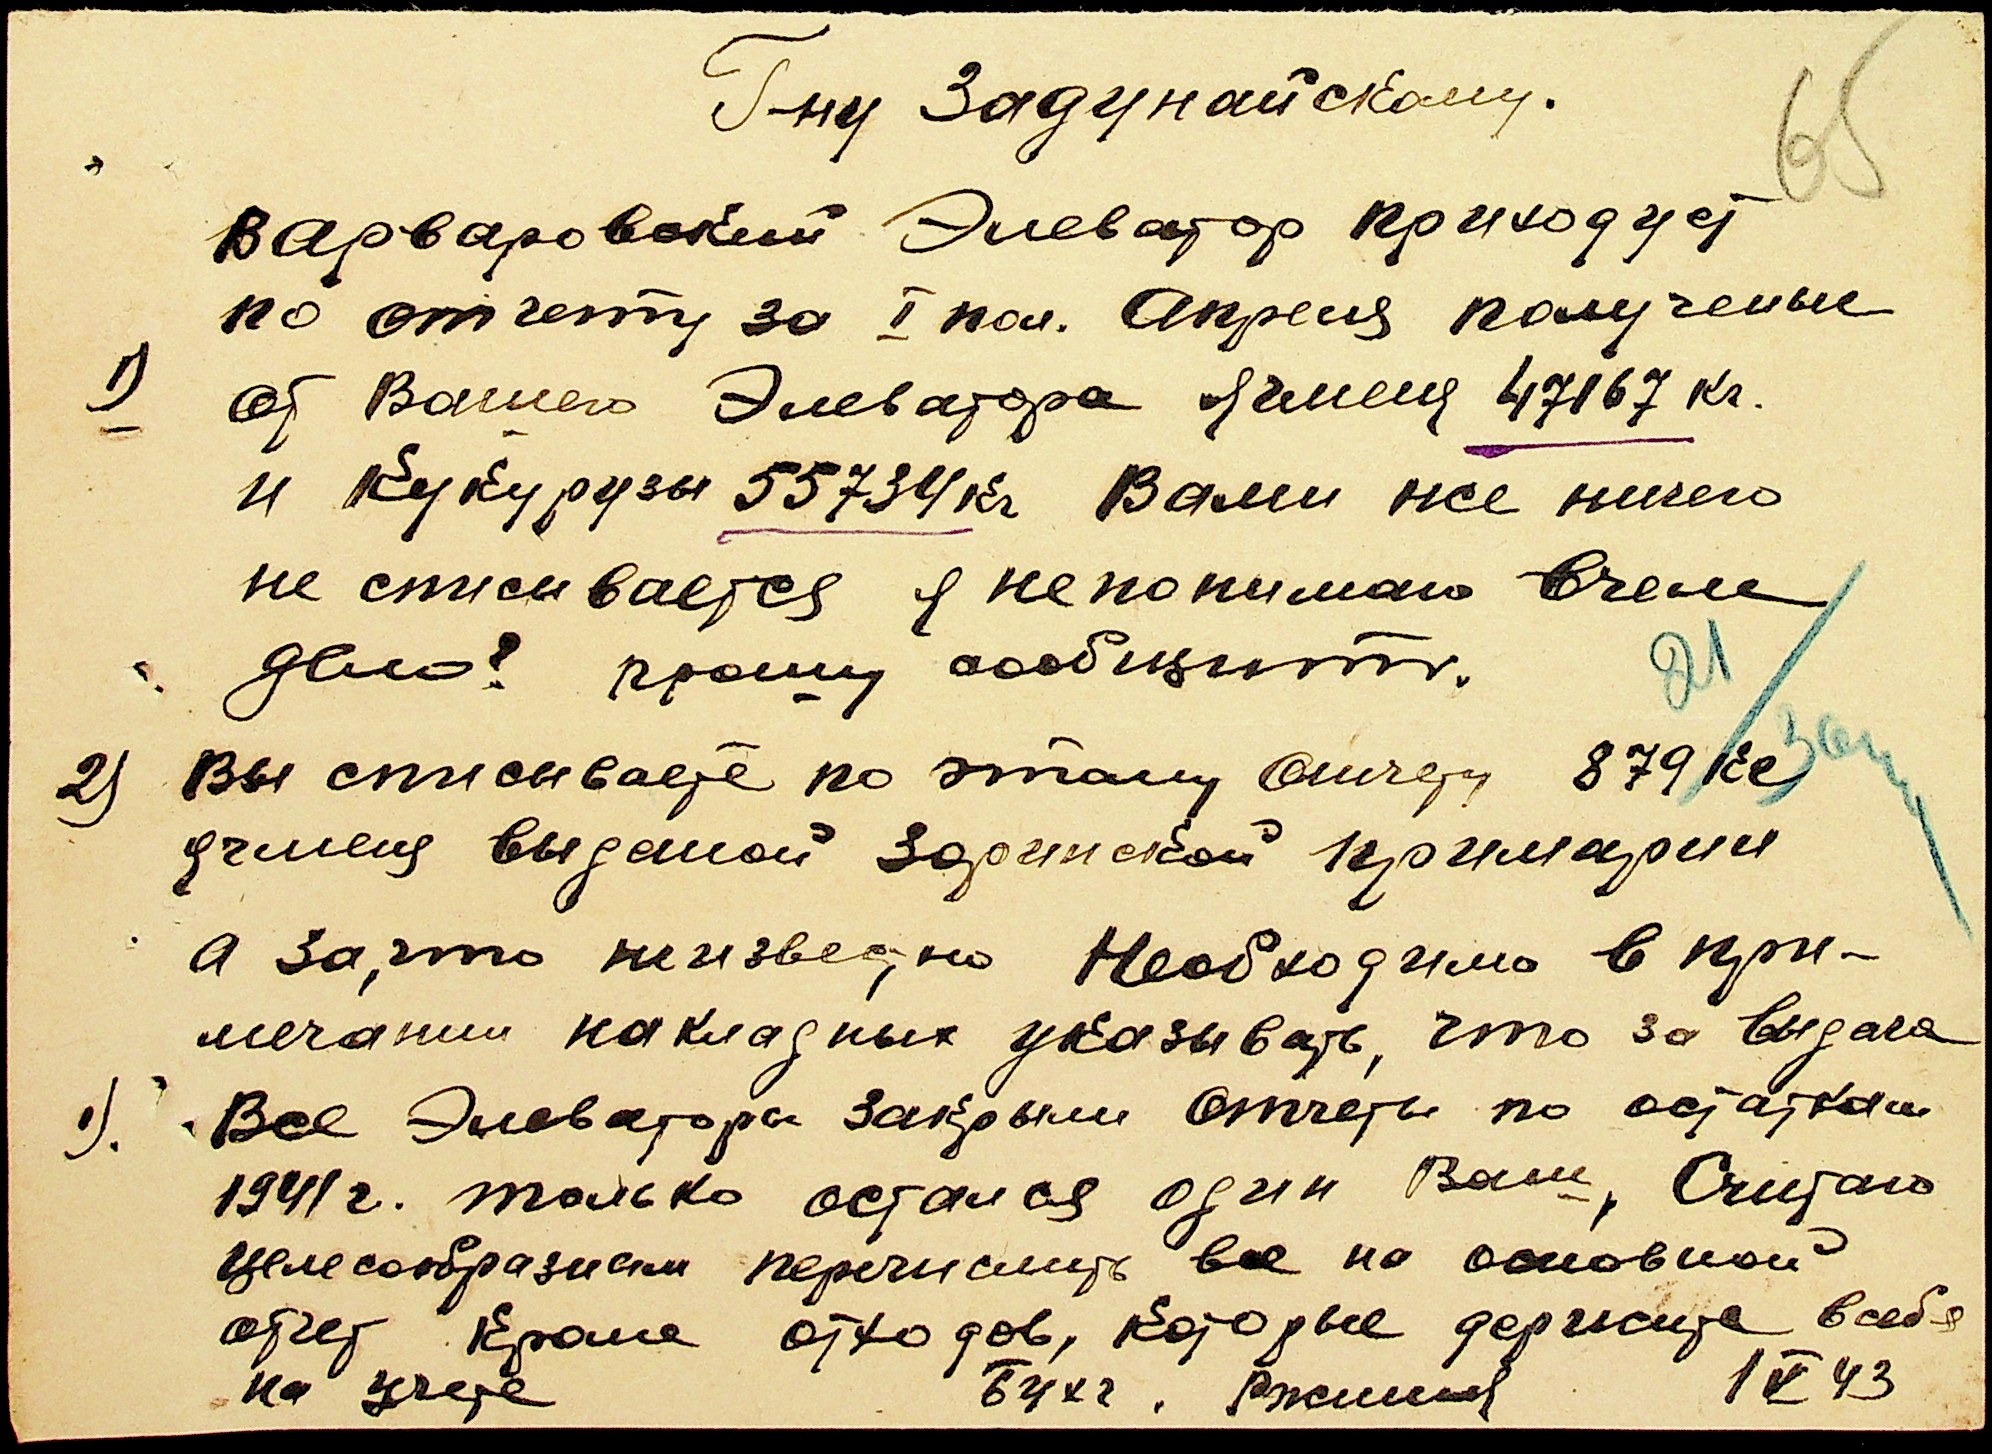 Г-ну Задунайскому.
65
Варваровский Элеватор приходует
по отчету за I пол. Апреля полученые
1) от Вашего Элеватора Ячменя 47167 кг.
и Кукурузы 55734 кг Вами же ничего
не списывается я непонимаю вчем
дело? прошу сообщить.
21/
2) Вы списываете по этому Отчету 879 кг
ячменя выданой Зоринской примарии
а за, что неизвестно Необходимо в при-
мечании накладных указывать, что за выдача
Все Элеваторы закрыли Отчеты по остаткам
1941 г. только остался один Ваш, Считаю
целесообразным перечислить все на основной
отчет кроме отходов, которые держите всебя
на учете Бухг. 1 V 43